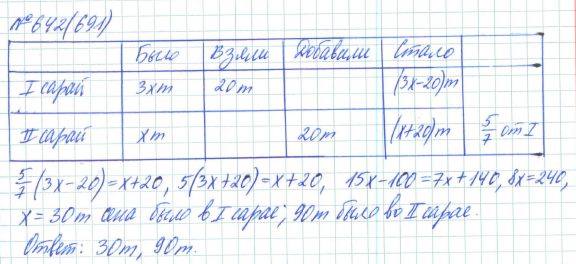 №642(691)
Было Взяли Добавили Стало
I сарай 3xт 20т (3x-20)т
II сарай xт 20т (x+20)т 5/7 от I
5/7(3x-20)=x+20, 5(3x+20)=x+20, 15x-100=7x+140, 8x=240,
x=30т сена было в I сарае; 90т было во II сарае.
Ответ: 30т, 90т.